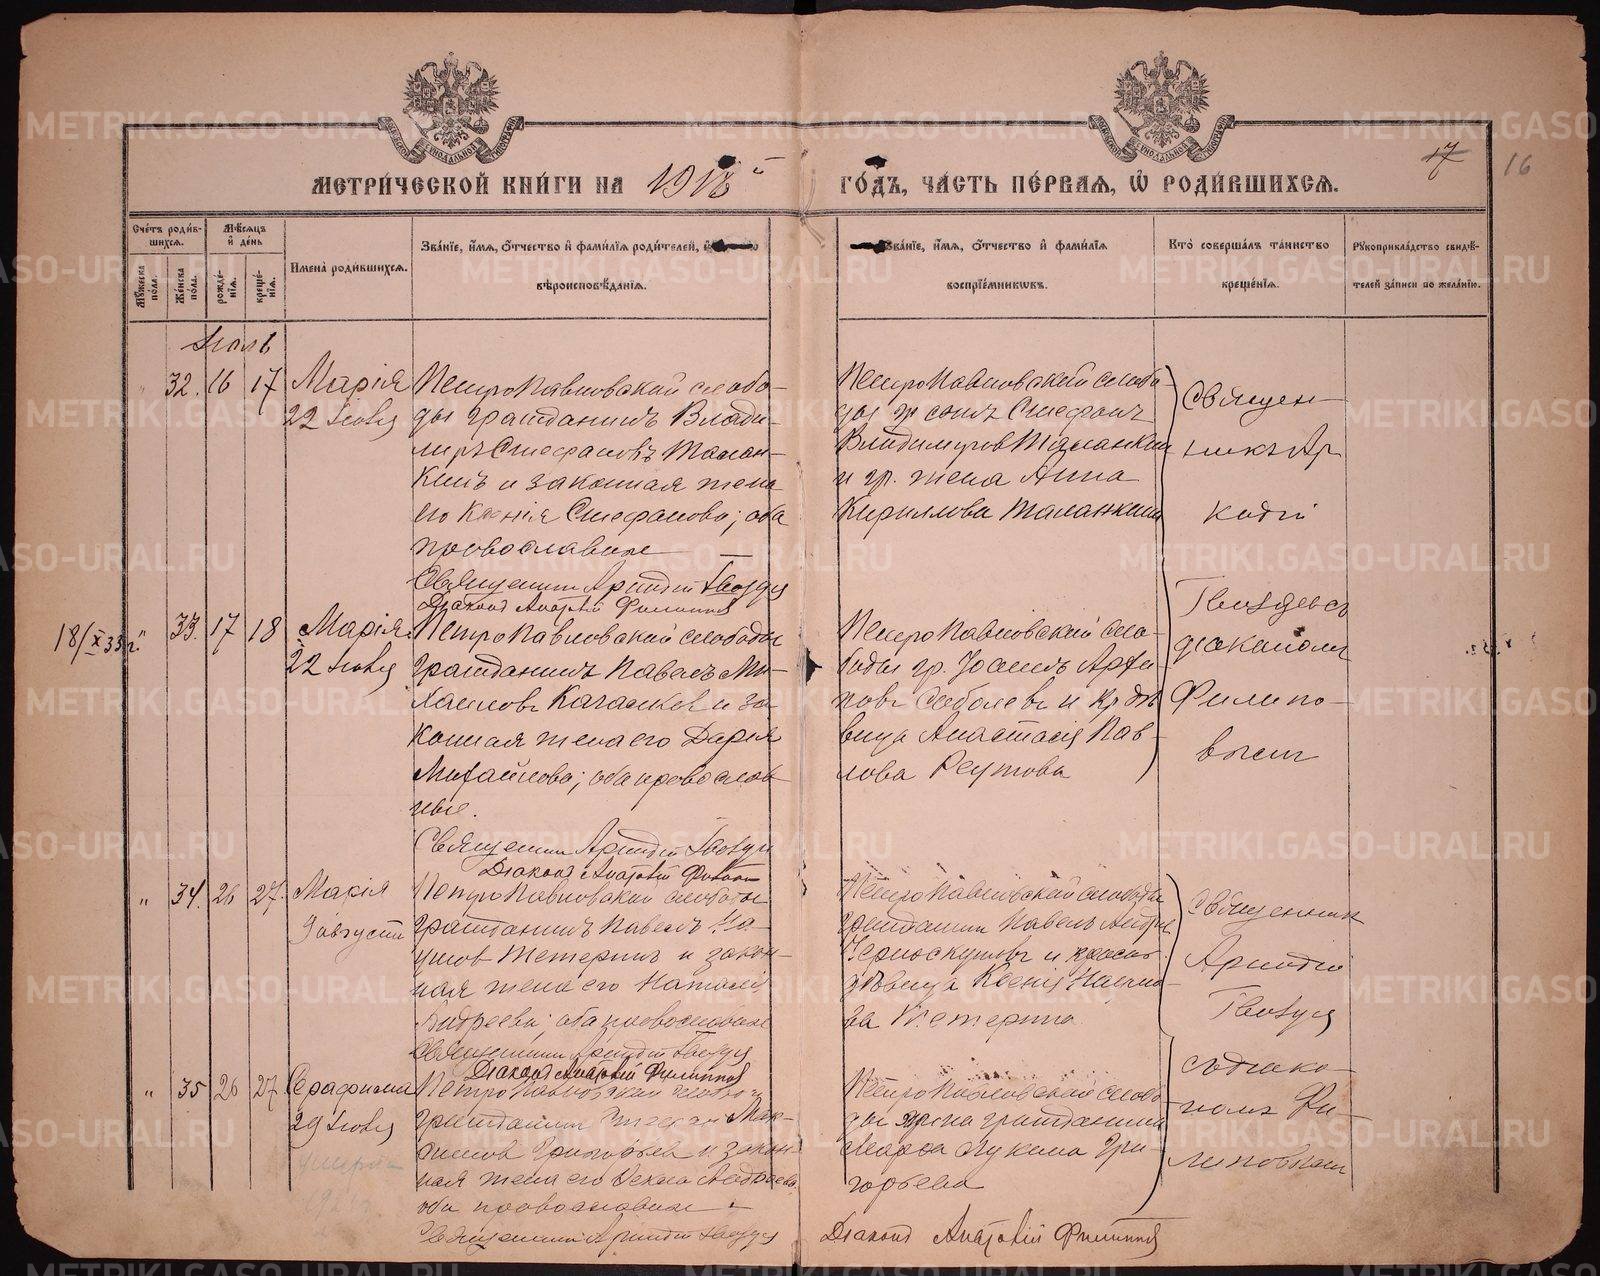 МЕТРИ́ЧЕСКОЙ КНИ́ГИ НА 1918 й
ГО́ДЪ, ЧА́СТЬ ПЕ́РВАѦ, Ѿ РОДИ́ВШИХСѦ.
17 16
Сче́тъ роди́в-
шихсѧ.
Мꙋ́жеска по́ла.
Же́нска по́ла.
Мѣ́сѧцъ и҆ де́нь
рожде́-
нїѧ.
креще́-
нїѧ.
И҆мена̀ роди́вшихсѧ.
Зва́нїе, и҆́мѧ, ѻ҆́тчество и҆ фами́лїѧ роди́телей,
вѣроисповѣ́данїѧ.
Зва́нїе, и҆́мѧ, ѻ҆́тчество и҆ фами́лїѧ
воспрїе́мниковъ.
Кто̀ соверша́лъ та́инство
креще́нїѧ.
Рꙋкоприкла́дство свидѣ́-
телей за́писи по жела́нїю.
Іюль
32. 16 17
Марія
22 Іюля
Петропавловской слобо-
ды гражданинъ Влади-
миръ Стефановъ Талан-
кинъ и законная жена
его Ксенія Стефанова; оба
православные
Священникъ Аркадій Гвоздевъ
Діаконъ Анатолій Филипповъ
Петропавловской слобо-
ды гр. сынъ Стефанъ
Владимировъ Таланкин
и гр. жена Анна
Кириллова Таланкина
Священ-
никъ Ар
кадій
Гвоздевъ
съ діакономъ
Филиппо-
вымъ
18/X 33 г.
" 33. 17 18
Марія
22 Іюля
Петропавловской слободы
гражданинъ Павелъ Ми-
хаиловъ и за
конная жена его Дарія
Михайлова; оба православ-
ные.
Священникъ Аркадій Гвоздевъ
Діаконъ Анатолій Филипповъ
Петропавловской сло-
боды гр. Іоаннъ
повъ Соболевъ и кр. дѣ
вица Анастасія Пав-
лова Реутова
" 34. 26 27.
Марія
Петропавловской слободы
гражданинъ Павелъ На-
умов Тетеринъ и закон-
ная жена его Наталія
Андреева; оба православные
Священникъ Аркадій Гвоздевъ
Діаконъ Анатолій Филипповъ
Петропавловской слободы
гражданинъ Павелъ Андре
Черноскутовъ и
дѣвица Ксенія Наумо-
ва Тетерина
Священникъ
Аркадій
Гвоздевъ
съ діако-
номъ Фи-
липповымъ
" 35 26 27
Серафима
29 Іюля
умерла
Петропавловской слободы
гражданинъ Стефан Мак-
симов Григорьев и закон-
ная жена его Андреева
оба православные
Священникъ Аркадій Гвоздевъ
Петропавловской слобо
ды жена гражданина
Марфа Лукина Гри-
горьева
Діаконъ Анатолій Филипповъ
METRIKI.GASO-URAL.RU